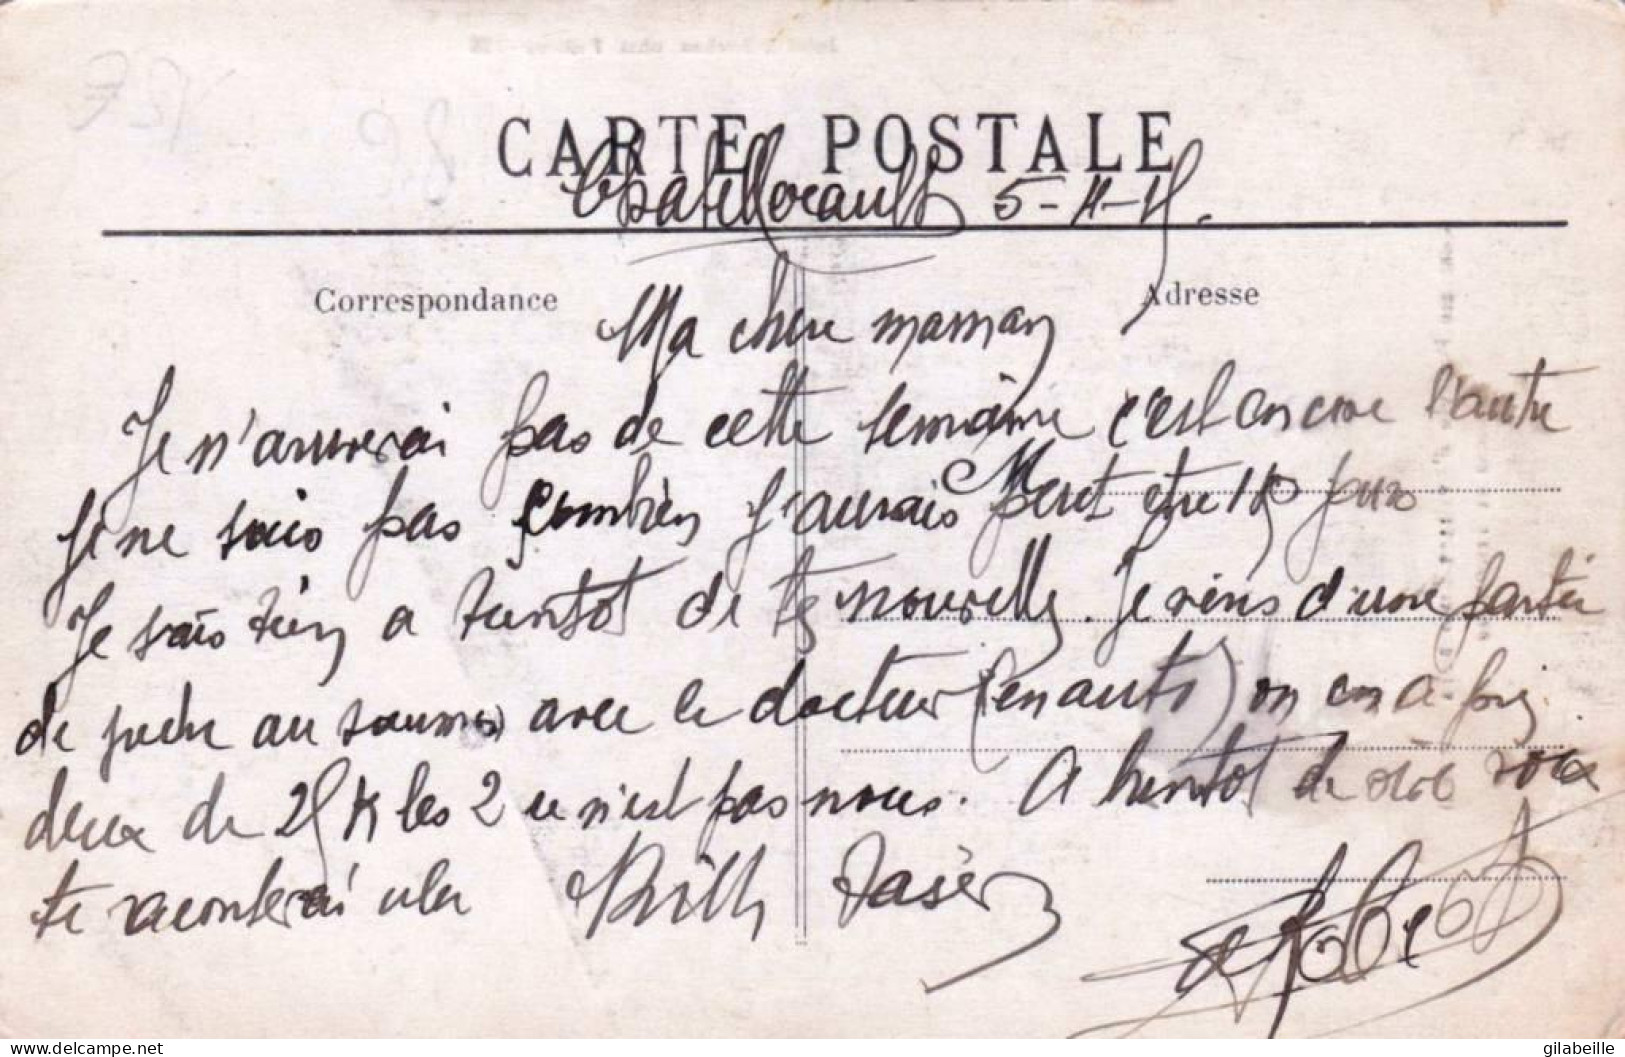 CARTE POSTALE
Chatellerault 5-11-15.
Correspondance
Adresse
Ma chere maman
Je n'arriverai pas de cette semaine c'est encore l'autre
Je ne sais pas combien j'aurais peut etre 15 jours
Je vais bien a bientot de tes nouvelles. Je viens d'une partie
de peche au saumon avec le docteur (en auto) on en a pris
deux de 25 K les 2 ce n'est pas nous. A bientot de
te raconterai cela Mille baisers
de
gilabeille